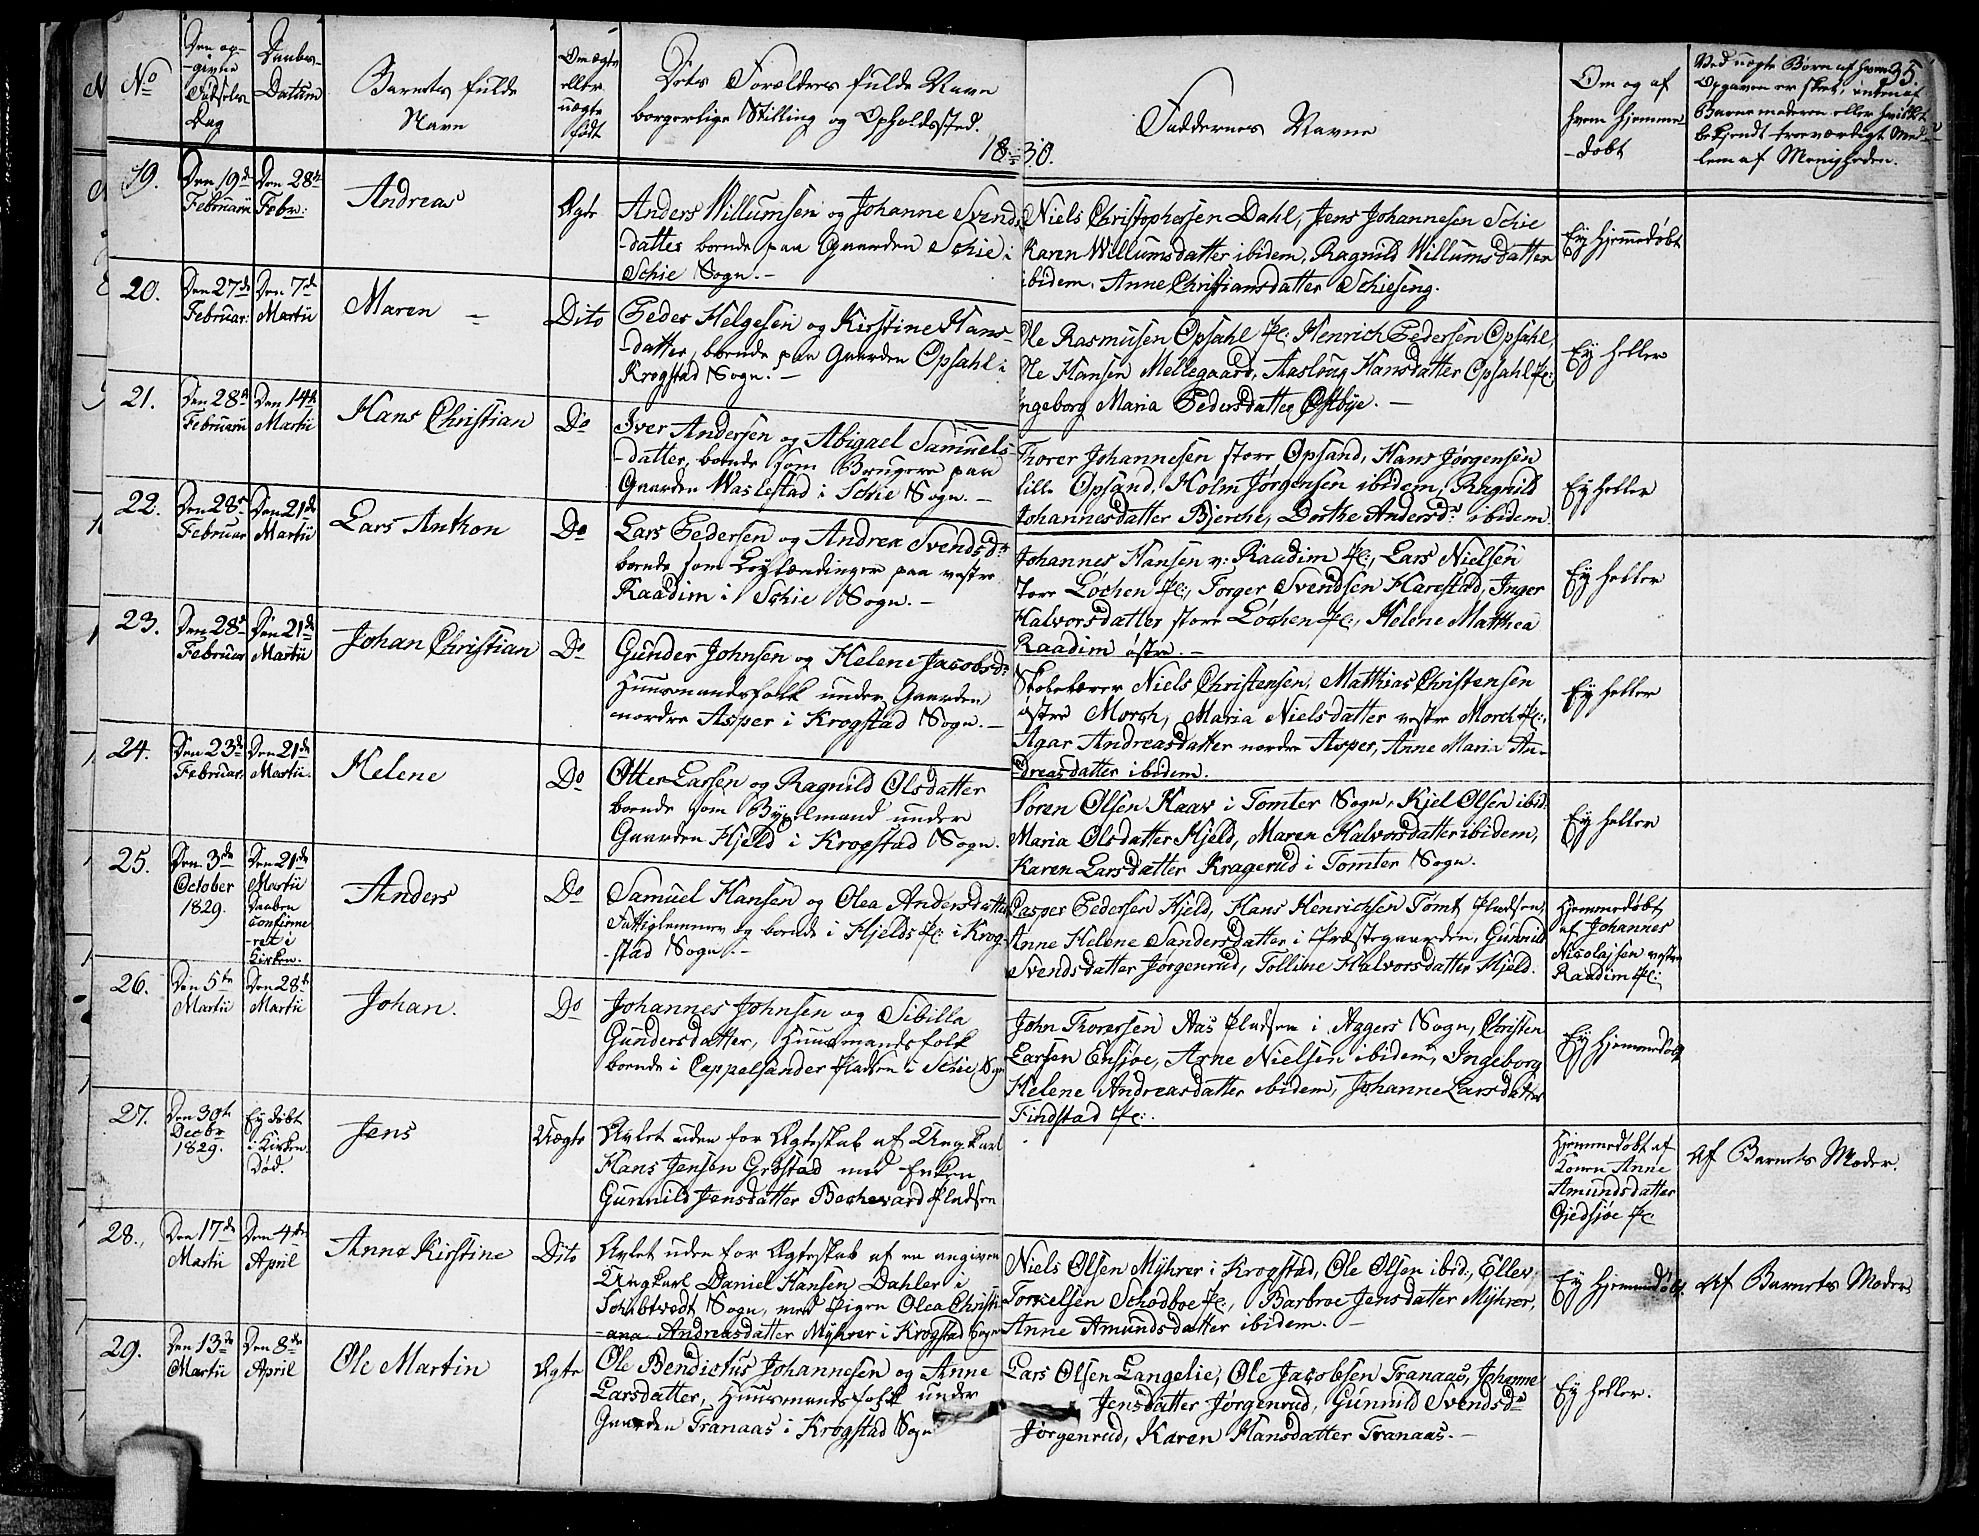 No
Den op-
-givne
Fødsels
Dag
Daabs-
Datum
Barnets fulde
Navn
Om ægte
eller
uægte
født
Dets Forældres fulde Navn
borgerlige Stilling og Opholdssted.
1830.
Faddernes Navne
Om og af
hvem hjemme
-døbt
35.
Ved uægte Børn af hvem
Opgaven er skeet, enten af
Barnemoderen eller hvilket
bekjendt troeværdigt Med-
lem af Menigheden.
19.
Den 19de
Februarii
Den 28de
Febr:
Andreas
Ægte
Anders Willumsen og Johanne Svends
-datter boende paa Gaarden Schie i
Schie Sogn.-
Niels Christophersen Dahl, Jens Johannesen Schie
Karen Willumsdatter ibidem, Ragnild Willumsdatter
ibidem, Anne Christiansdatter Schieseng.
Ey hjemmedøbt
20.
Den 27de
Februar:
Den 7de
Martii
Maren -
Dito
Peder Helgesen og Kirstine Hans-
-datter, boende paa Gaarden Opsahl i
Krogstad Sogn. -
Ole Rasmusen Opsahl Pl: Henrich Pedersen Opsahl,
Ole Hansen Mellegaard, Aaslaug Hansdatter Opsahl Pl:
Ingeborg Maria Pedersdatter Østbye. -
Ey heller
21.
Den 28de
Februarii
Den 14de
Martii
Hans Christian
Do
Iver Andersen og Abigael Samuels-
-datter, boende som Brugere paa
Gaarden Waslestad i Schie Sogn. -
Thorer Johannesen store Opsand, Hans Jørgensen
lille Opsand, Holm Jørgensen ibidem, Ragnild
Johannesdatter Bjerche, Dorthe Andersdr ibidem.
Ey heller
22.
Den 28de
Februar
Den 21de
Martii
Lars Anthon
Do
Lars Pedersen og Andrea Svendsdr
boende som Leylændinger paa vestre
Raadim i Schie Sogn. -
Johannes Hansen v: Raadim Pl:, Lars Nielsen
store Løchen Pl:, Torger Svendsen Harestad, Inger
Halvorsdatter store Løchen Pl:, Helene Matthea
Raadim østre. -
Ey heller
23.
Den 28de
Februar
Den 21de
Martii
Johan Christian
Do
Gunder Johnsen og Helene Jacobsdr
Huusmandsfolk under Gaarden
nordre Asper i Krogstad Sogn. -
Skolelærer Niels Christensen, Matthias Christensen
østre Morch, Maria Nielsdatter vestre Morch Pl:,
Agar Andreasdatter nordre Asper, Anne Maria An-
-dreasdatter ibidem.
Ey heller
24.
Den 23de
Februar.
Den 21de
Martii.
Helene
Do
Otter Larsen og Ragnild Olsdatter
boende som Bygselmand under
Gaarden Hjeld i Krogstad Sogn.
Søren Olsen Haav i Tomter Sogn, Kjel Olsen ibid:
Maria Olsdatter Hjeld, Maren Halvorsdatter ibidem,
Karen Larsdatter Kragerud i Tomter Sogn.
Ey heller
25.
Den 3de
October
1829.
Den 21de
Martii
Daaben
confirme
-ret i
Kirken.
Anders
Do
Samuel Hansen og Olea Andersdatter
Fattiglemmer og boende i Hjelds Pl: i Krog-
-stad Sogn. -
Casper Pedersen Hjeld, Hans Henrichsen Tømt Pladsen,
Anne Helene Sandersdatter i Præstegaarden, Gunnild
Svendsdatter Jørgenrud, Tolline Halvorsdatter Hjeld.
Hjemmedøbt
af Johannes
Nicolajsen vestre
Raadim Pl:
26.
Den 5te
Martii
Den 28de
Martii
Johan.
Do
Johannes Johnsen og Sibilla
Gundersdatter, Huusmandsfolk
boende i Cappelsander Pladsen i Schie Sogn
John Thorersen Aas Pladsen i Aggers Sogn, Christen
Larsen Ensjøe, Arne Nielsen ibidem, Ingeborg
Helene Andreasdatter ibidem, Johanne Larsdatter
Findstad Pl:.
Ey hjemmedøbt
27.
Den 30te
Decbr
1829.
Ey døbt
i Kirken
Død.
Jens
Uægte
Avlet uden for Ægteskab af Ungkarl
Hans Jensen Grøstad med Enken
Gunnild Jensdatter Bechevard Pladsen
Hjemmedøbt af
Konen Anne
Amundsdatter
Gjedsjøe Pl:
Af Barnets Moder.
28.
Den 17de
Martii
Den 4de
April
Anne Kirstine
Dito
Avlet uden for Ægteskab af en angiven
Ungkarl Daniel Hansen Dahler i
Schibtvedt Sogn, med Pigen Olea Christi-
-ana Andreasdatter Myhrer i Krogstad Sogn
Niels Olsen Myhrer i Krogstad, Ole Olsen ibid:, Ellev
Torkelsen Schodboe Pl:, Barbroe Jensdatter Myhrer,
Anne Amundsdatter ibidem. -
Ey hjemmedøbt
Af Barnets Moder
29.
Den 13de
Martii
Den 8de
April
Ole Martin
Ægte
Ole Bendictus Johannesen og Anne
Larsdatter, Huusmandsfolk under
Gaarden Tranaas i Krogstad Sogn
Lars Olsen Langelie, Ole Jacobsen Tranaas, Johanne
Jensdatter Jørgenrud, Gunnild Svendsdr
Jørgenrud, Karen Hansdatter Tranaas. -
Ey heller.